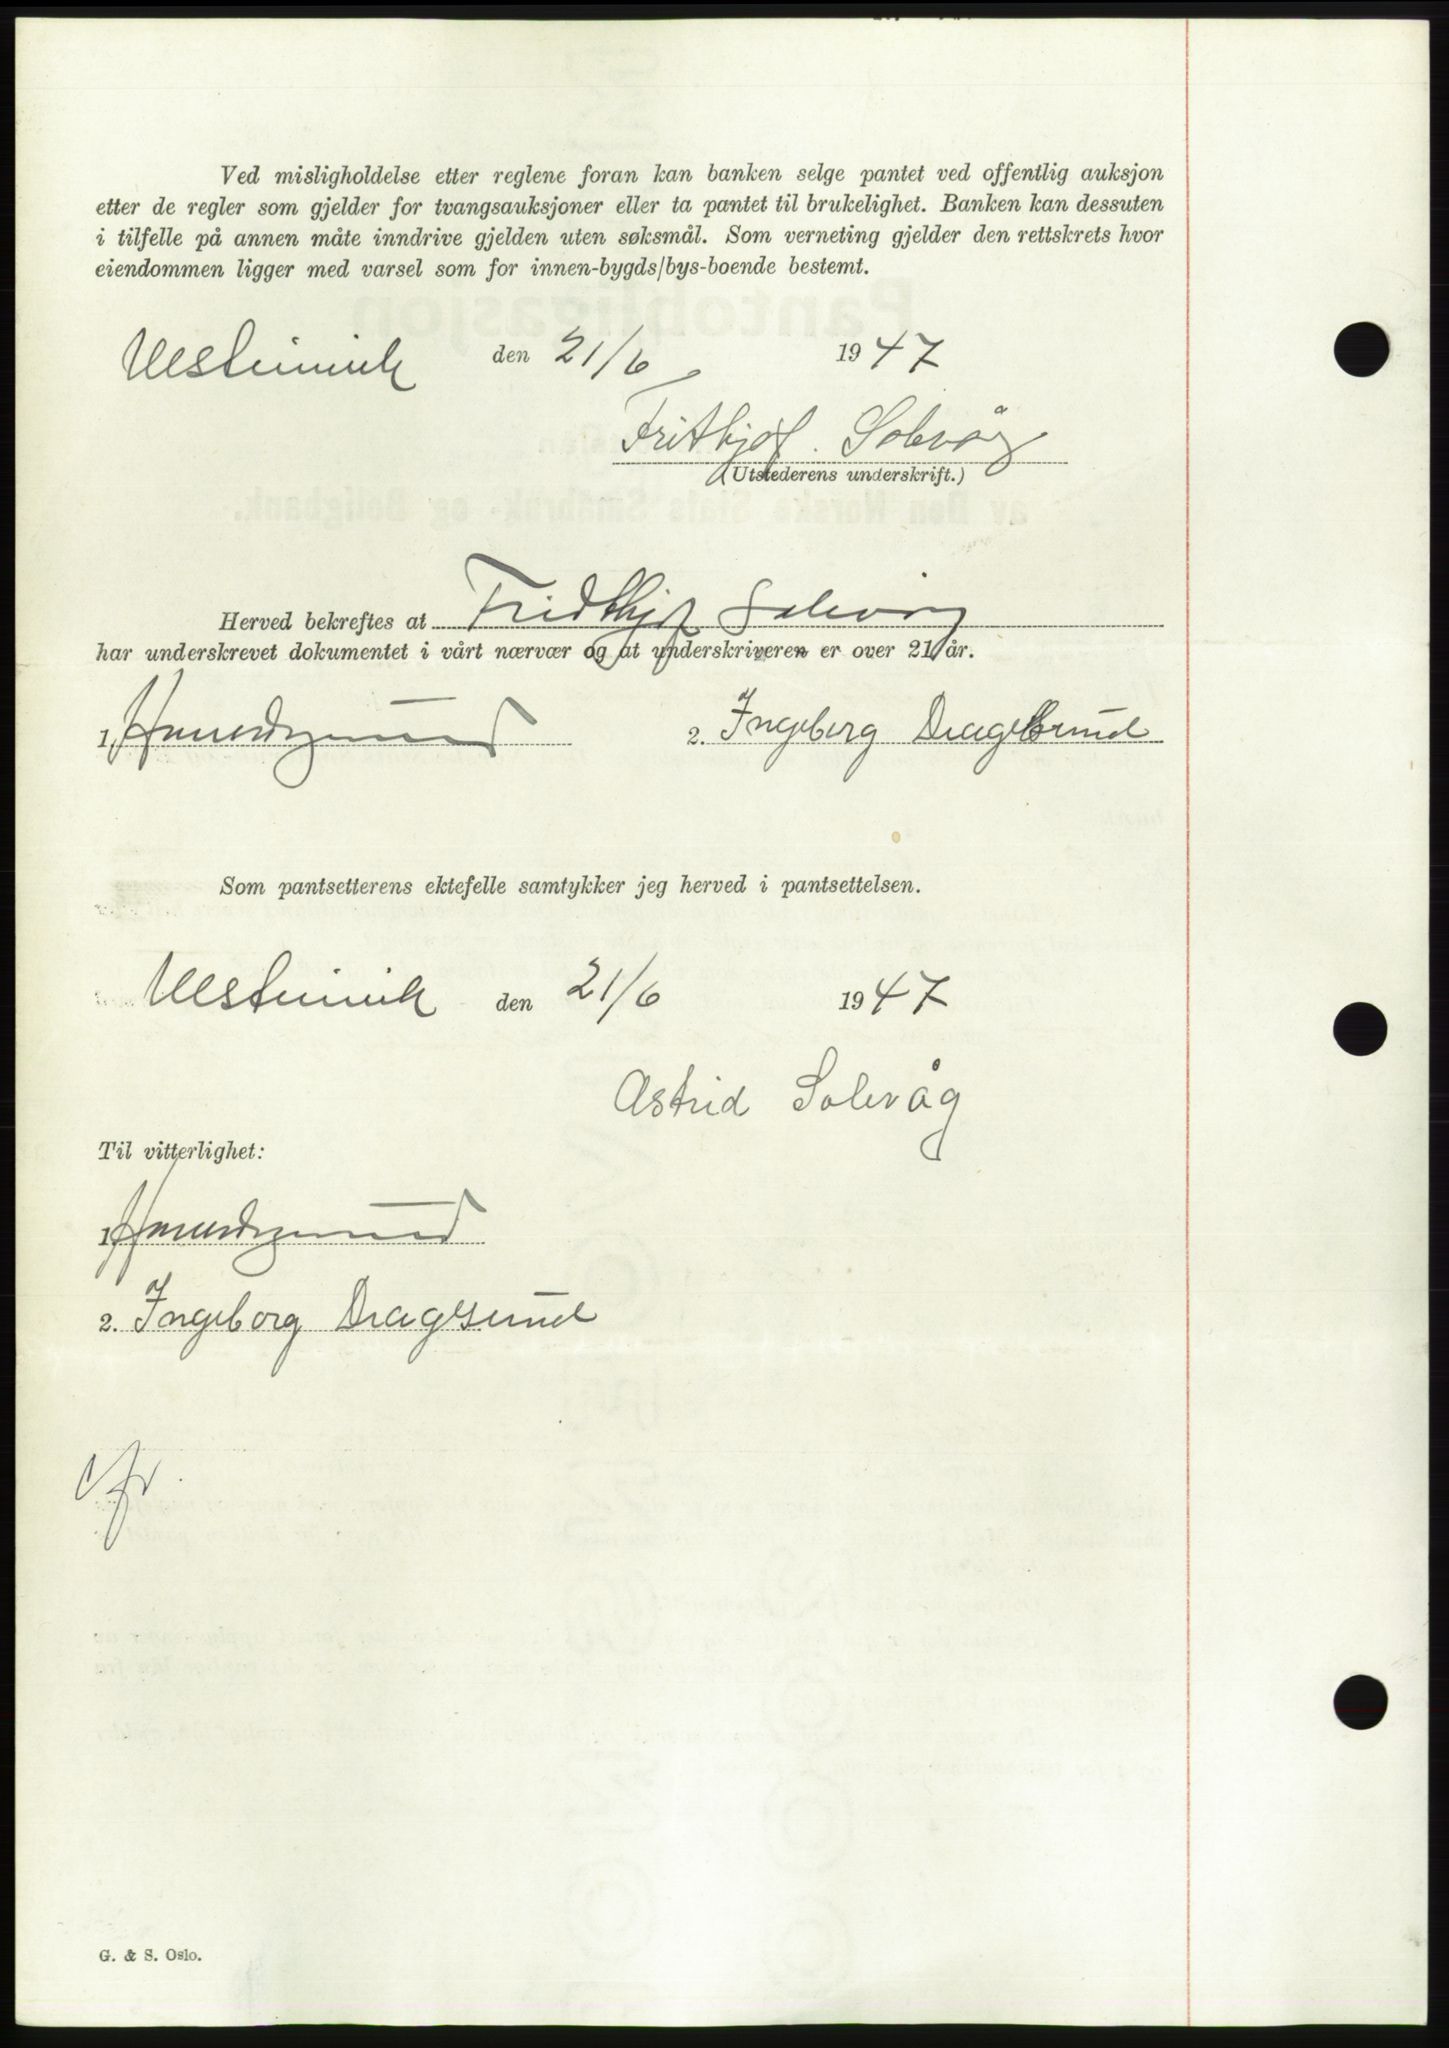 Ved misligholdelse etter reglene foran kan banken selge pantet ved offentlig auksjon
etter de regler som gjelder for tvangsauksjoner eller ta pantet til brukelighet. Banken kan dessuten
i tilfelle på annen måte inndrive gjelden uten søksmål. Som verneting gjelder den rettskrets hvor
eiendommen ligger med varsel som for innen-bygds/bys-boende bestemt.
den 21/6 1947
Frithjof Solevåg
(Utstederens underskrift.)
Herved bekreftes at Fridthjof Solevåg
har underskrevet dokumentet i vårt nærvær og at underskriveren er over 21 år.
1.
2. Ingeborg Dragesund
Som pantsetterens ektefelle samtykker jeg herved i pantsettelsen.
den 21/6 1947
Astrid Solevåg
Til vitterlighet:
1.
2. Ingeborg Dragsund
G. & S. Oslo.